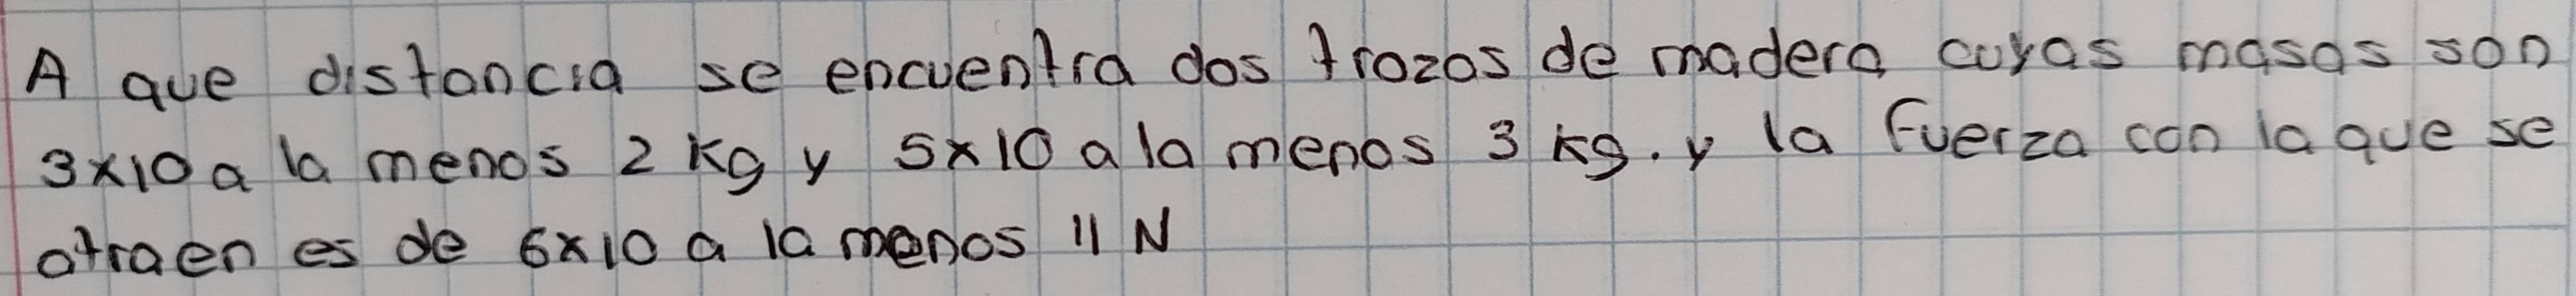 A que distancia se encuentra dos trozos de madera cuyas masas son
3x10 a la menos 2 kg y 5x10 a la menos 3 kg. y la fuerza con la que se
atraen es de 6x10 a la menos 11 N